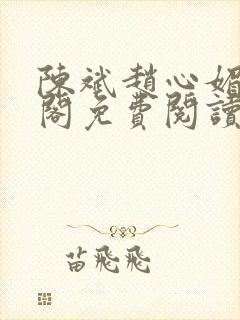 陳斌趙心媚
閣免費閱讀
苗飛飛